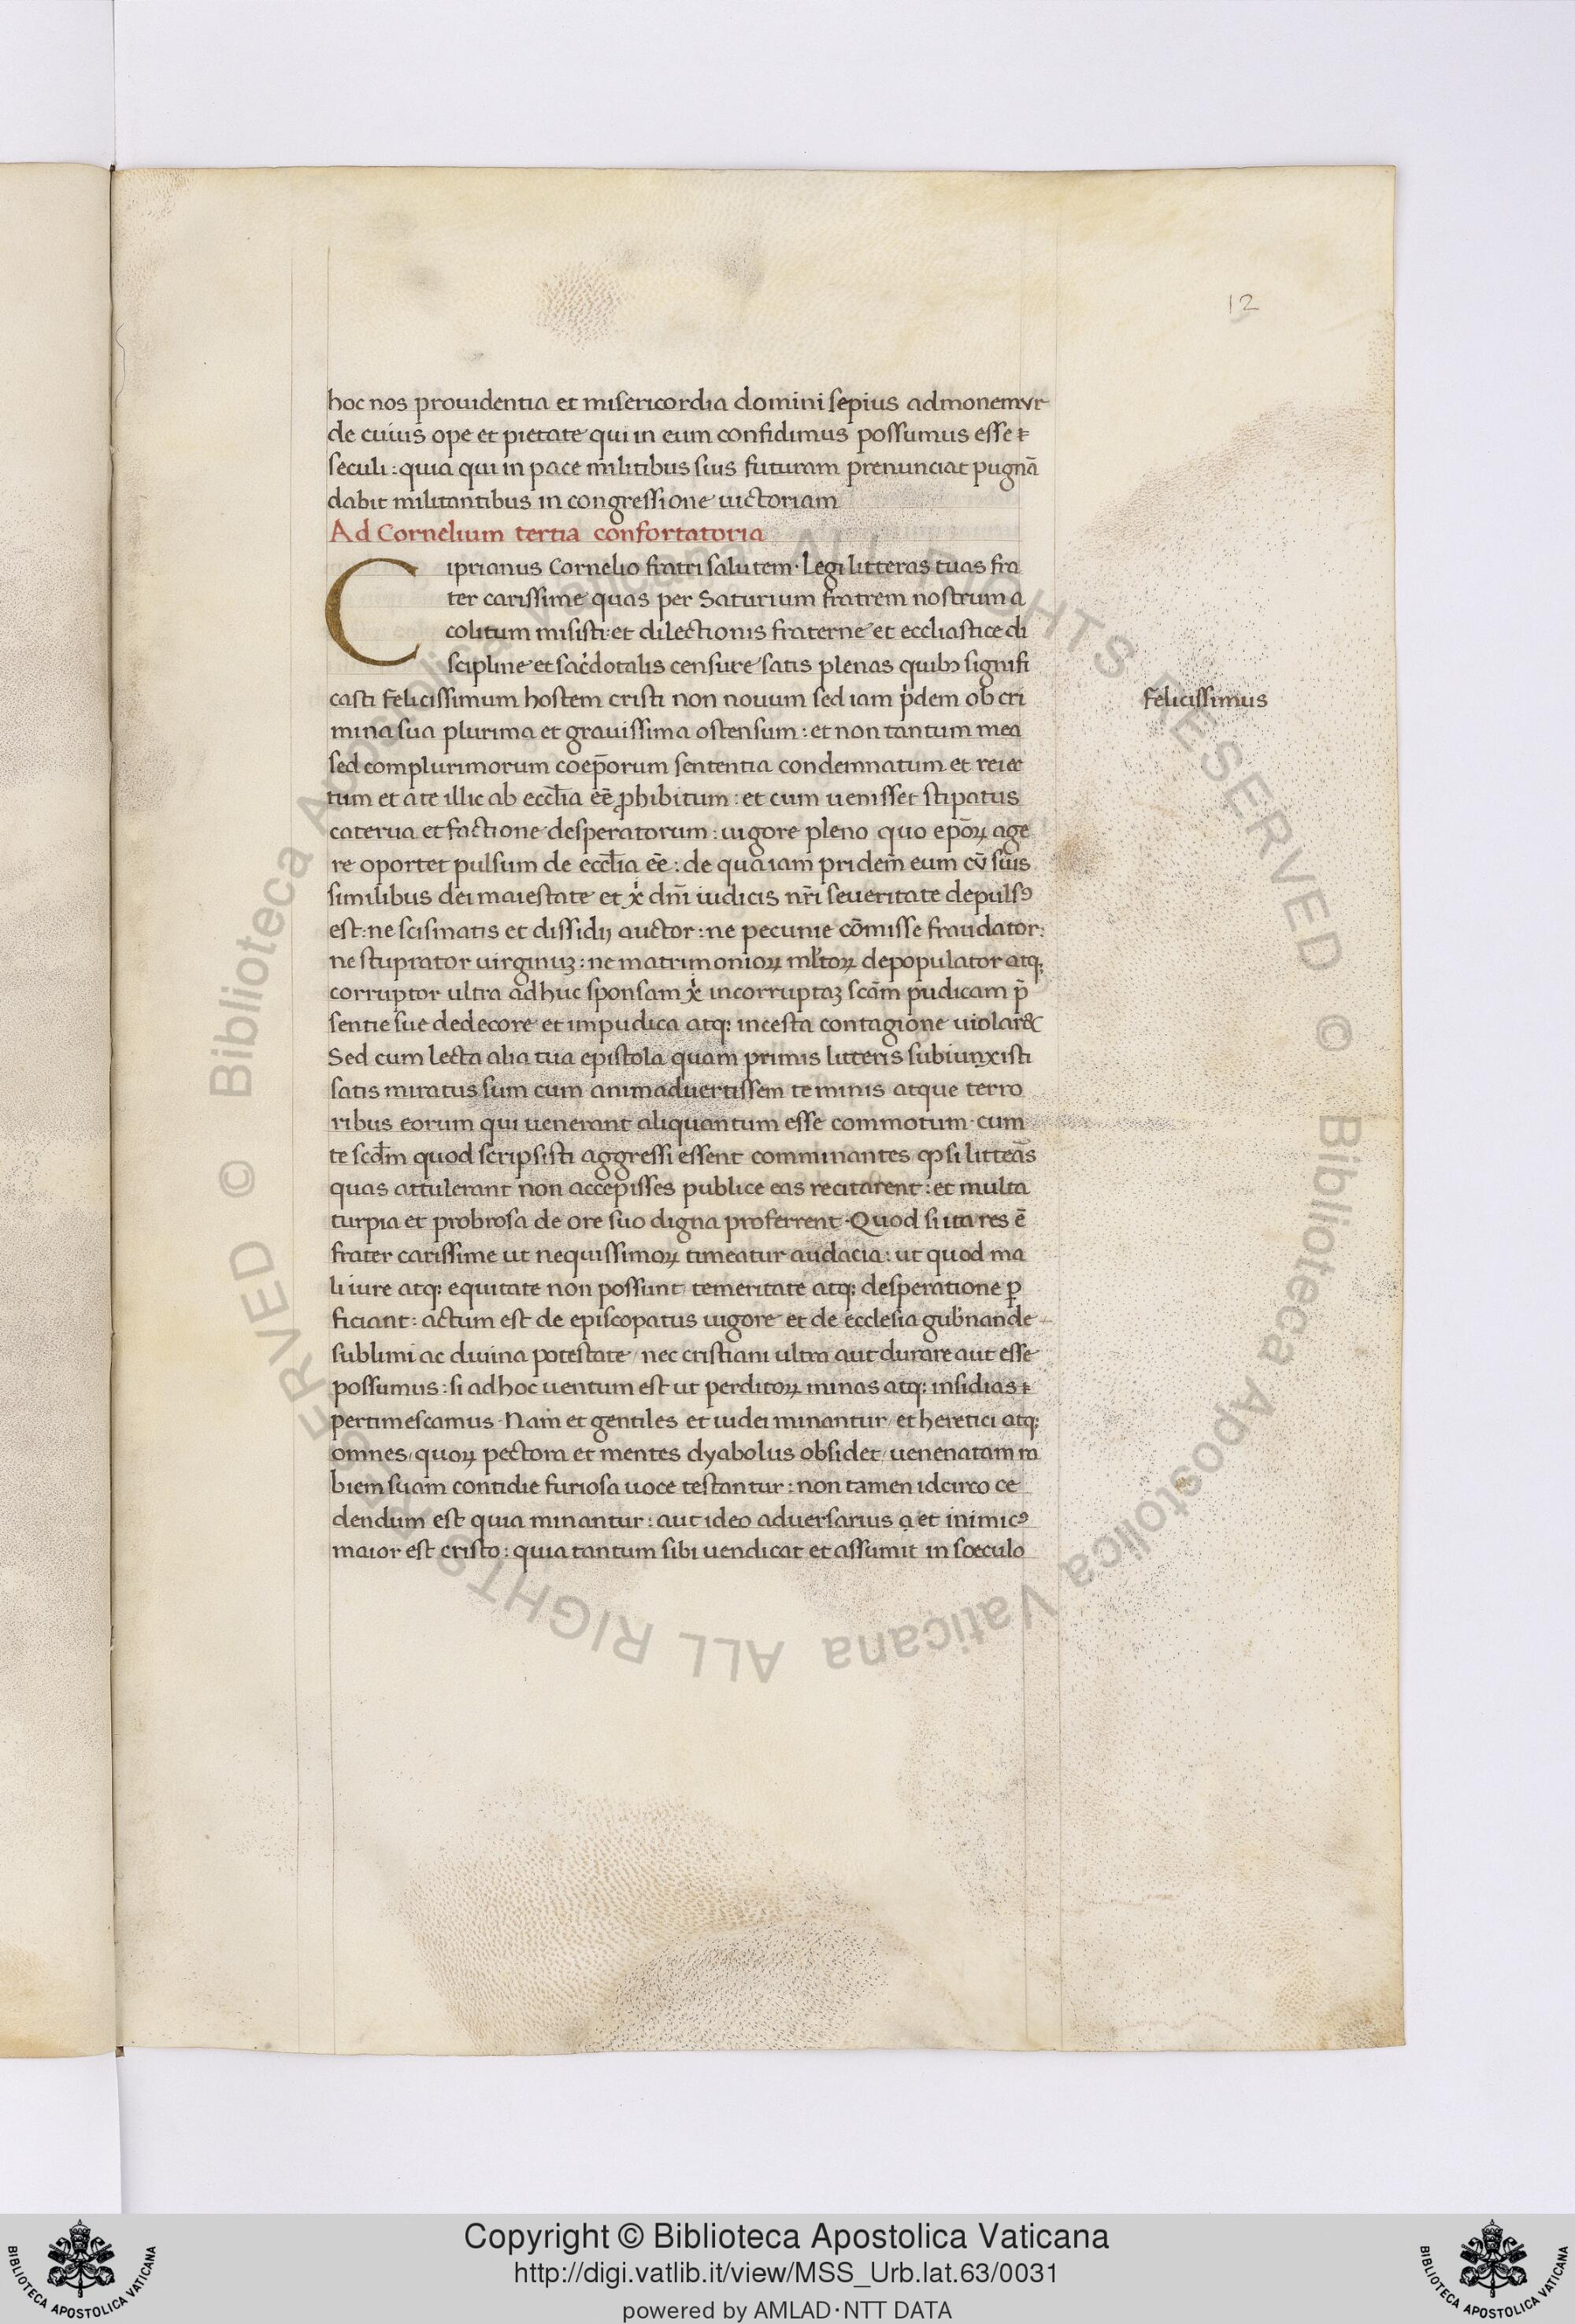 12
hoc nos prouidentia et misericordia domini sepius admonemvr
de cuius ope et pietate qui in eum confidimus possumus esse
seculi : quia qui in pace militibus suis futuram prenunciat pugnā
dabit militantibus in congressione uictoriam
Ad Cornelium tertia confortatoria
Ciprianus Cornelio fratri salutem · Legi litteras tuas fra
ter carissime quas per Saturium fratrem nostrum a
colitum misisti : et dilectionis fraterne et eccliastice di
scipline et sac̓dotalis censure satis plenas quibꝫ signifi
casti felicissimum hostem cristi non nouum sed iam p̓dem ob cri
mina sua plurima et grauissima ostensum : et non tantum mea
felicissimus
sed complurimorum coep̄orum sententia condemnatum et reiec
tum et a te illic ab eccl̄ia eē ꝓhibitum : et cum uenisset stipatus
caterua et factione desperatorum : uigore pleno quo ep̄oꝝ age
re oportet pulsum de eccl̄ia eē : de qua iam pridem eum cū suis
similibus dei maiestate et x̓ dm̄i iudicis nr̄i seueritate depulsꝰ
est : ne scismatis et dissidij auctor : ne pecunie cōmisse fraudator :
ne stuprator uirginuꝫ : ne matrimonioꝝ ml̓toꝝ depopulator atqꝫ
corruptor ultra adhuc sponsam x̓ incorruptaꝫ scām pudicam p̄
sentie sue dedecore et impudica atqꝫ incesta contagione uiolar&
Sed cum lecta alia tua epistola quam primis litteris subiunxisti
satis miratus sum cum animaduertissem te minis atque terro
ribus eorum qui uenerant aliquantum esse commotum · cum
te scd̄m quod scripsisti aggressi essent comminantes ꝙ si litteās
quas attulerant non accepisses publice eas recitarent : et multa
turpia et probrosa de ore suo digna proferrent · Quod si ita res ē
frater carissime ut nequissimoꝝ timeatur audacia : ut quod ma
li iure atqꝫ equitate non possunt / temeritate atqꝫ desperatione ꝑ
ficiant : actum est de episcopatus uigore et de ecclesia gub̓nande
sublimi ac diuina potestate / nec cristiani ultra aut durare aut esse
possumus : si ad hoc uentum est ut perditoꝝ minas atqꝫ insidias
pertimescamus · Nam et gentiles et iudei minantur / et heretici atqꝫ
omnes / quoꝝ pectora et mentes dyabolus obsidet / uenenatam ra
biem suam contidie furiosa uoce testantur : non tamen idcirco ce
dendum est quia minantur : aut ideo aduersarius a et inimicꝰ
maior est cristo : quia tantum sibi uendicat et assumit in soeculo
© Biblioteca Apostolica Vaticana ALL RIGHTS RESERVED © Biblioteca Apostolica Vaticana ALL RIGHTS RESERVED
BIBLIOTECA APOSTOLICA VATICANA
Copyright © Biblioteca Apostolica Vaticana
http://digi.vatlib.it/view/MSS_Urb.lat.63/0031
powered by AMLAD·NTT DATA
BIBLIOTECA APOSTOLICA VATICANA